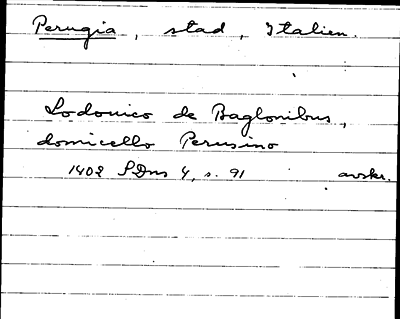 Perugia, stad, Italien.
Lodovico de Baglonibus,
domicello Perusino
1402 SDns 4, s. 91 avskr.